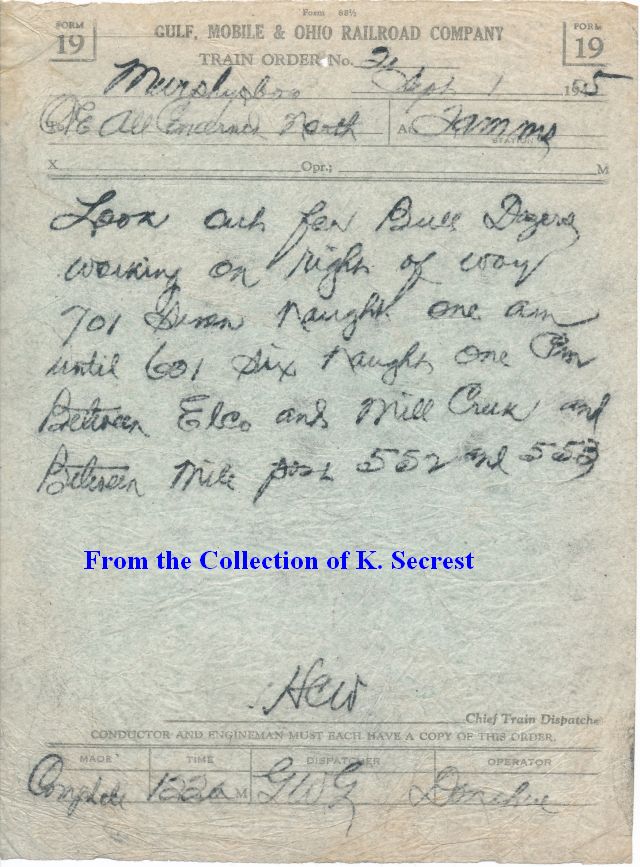 Form 68½
FORM 19
GULF, MOBILE & OHIO RAILROAD COMPANY
FORM 19
TRAIN ORDER No. 21
Murphysboro Sept 1 1945
C&E All Engines North At Tamms
STATION
X Opr.; M
Look out for Bull Dozers
working on right of way
701 Seven Naught one am
until 601 Six Naught One Pm
Between Elco and Mill Creek and
Between Mile post 552 and 553
From the Collection of K. Secrest
HCW
Chief Train Dispatche
CONDUCTOR AND ENGINEMAN MUST EACH HAVE A COPY OF THIS ORDER.
MADE TIME DISPATCHER OPERATOR
Complete M GWG Donahue